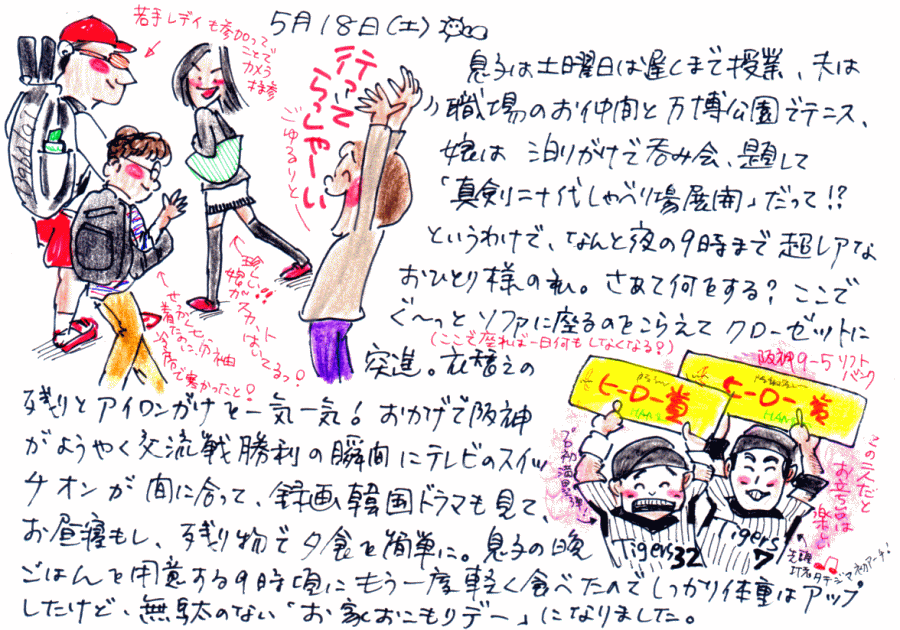 5月18日(土)
若手レディも参加って
ことで
カメラ
持参
行って
らっしゃーい
ごゆるりと〜
珍しい!!
娘が
スカート
はいてるっ!
せっかく七分袖
着たのに、
寒かったと!
息子は土曜日は遅くまで授業、夫は
職場のお仲間と万博公園でテニス、
娘は 泊りがけで呑み会、題して
「真剣ニナ代しゃべり場展開」だって!?
というわけで、なんと夜の9時まで超レアな
おひとり様の私。さあて何をする?ここで
ぐ〜っとソファに座るのをこらえてクローゼットに
(ここで座れば一日何もしなくなる?)
突進。衣替えの
残りとアイロンがけを一気一気!おかげで阪神
がようやく交流戦勝利の瞬間にテレビのスイッ
チオンが間に合って、録画韓国ドラマも見て、
お昼寝もし、残り物で夕食を簡単に。息子の晩
ごはんを用意する9時頃にもう一度軽く食べたのでしっかり体重はアップ
したけど、無駄のない「お家おこもりデー」になりました。
阪神9-5ソフト
バンク
ヒーロー賞
ヒーロー賞
Tigers
32
Tigers
7
この2人だと
お立ち台は
楽しい